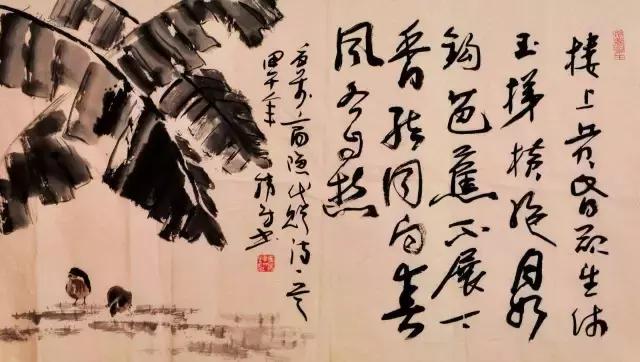 楼上黄昏欲望休
玉梯横绝月如
钩芭蕉不展丁
香结同向春
风各自愁
商隐 诗一首
甲午年 书